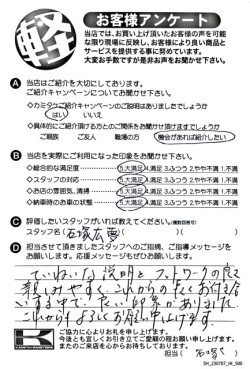 軽
お客様アンケート
当店では、お買い上げ頂いたお客様の声を可能
な限り現場に反映し、お客様により良い商品と
サービスを提供する事に努めています。
大変お手数ですが是非お声をお聞かせ下さい。
A 当店はご紹介を大切にしております。
ご紹介キャンペーンについてお聞かせ下さい。
◇カミタケご紹介キャンペーンのご説明はありましたでしょうか
はい いいえ
◇具体的にご紹介頂ける方とのご関係をお聞かせ頂けますでしょうか
ご親族 ご友人 職場の方 機会があれば紹介したい
B 当店を実際にご利用になった印象をお聞かせ下さい。
◇総合的な満足度 5.大満足 4.満足 3.ふつう 2.やや不満 1.不満
◇スタッフの対応 5.大満足 4.満足 3.ふつう 2.やや不満 1.不満
◇お店の雰囲気、清掃 5.大満足 4.満足 3.ふつう 2.やや不満 1.不満
◇納車時のお車の状態 5.大満足 4.満足 3.ふつう 2.やや不満 1.不満
C 評価したいスタッフがいれば教えてください。(複数回答可)
スタッフ名( 石塚 )( )
D 担当させて頂きましたスタッフへのご指摘、ご指導メッセージを
お願いします。応援メッセージもぜひお願いします。
ていねいな説明とフットワークの良さ
親しみやすく、これからの
する中で、
これからもよろしくお願い申し上げます。
ご協力に心よりお礼を申し上げます。
今後とも宜しくお引き立てご愛顧の程お願い申し上げます。
またのご来店を心からお待ちしております。
担当( 石塚 )
SH_230707_HI_500